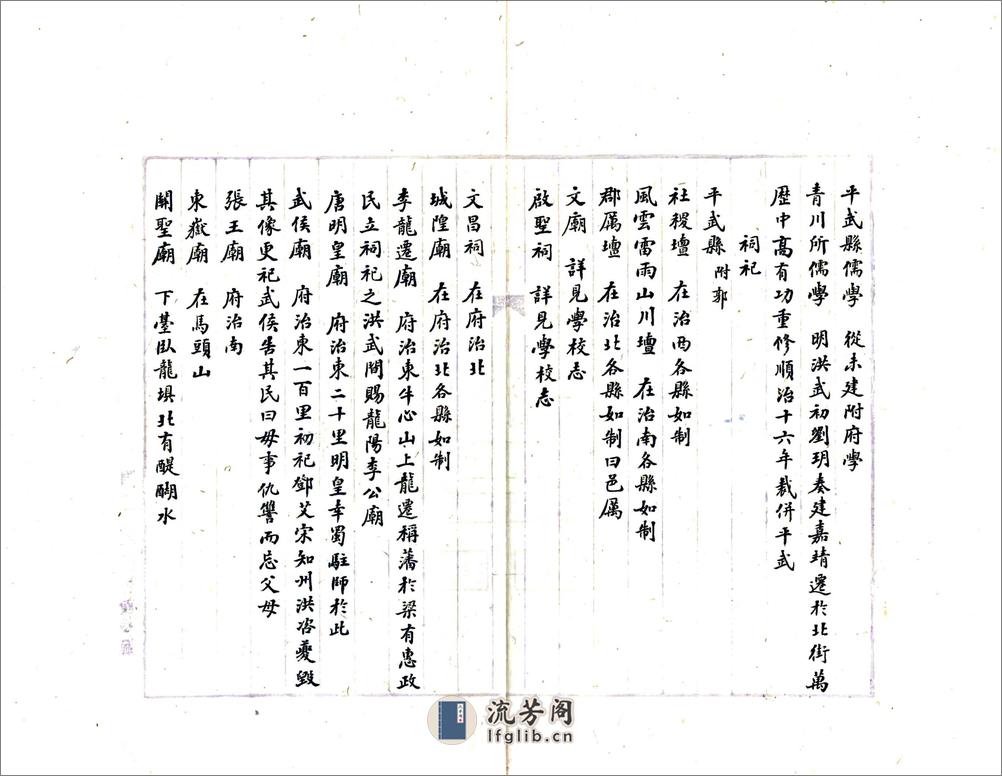 平武縣儒學　從未建附府學
青川所儒學　明洪武初劉玥奏建嘉靖遷於北街萬
歷中高有功重修順治十六年裁併平武
祠祀
平武縣　附郭
社稷壇　在治西各縣如制
風雲雷雨山川壇　在治南各縣如制
郡厲壇　在治北各縣如制曰邑厲
文廟　詳見學校志
啟聖祠　詳見學校志
文昌祠　在府治北
城隍廟　在府治北各縣如制
李龍遷廟　府治東牛心山上龍遷稱藩於梁有惠政
民立祠祀之洪武間賜龍陽李公廟
唐明皇廟　府治東二十里明皇幸蜀駐師於此
武侯廟　府治東一百里初祀鄧艾宋知州洪咨夔毀
其像更祀武侯告其民曰毋事仇讐而忘父母
張王廟　府治南
東嶽廟　在馬頭山
關聖廟　下臺臥龍埧北有醍醐水
流芳阁
lfglib.cn